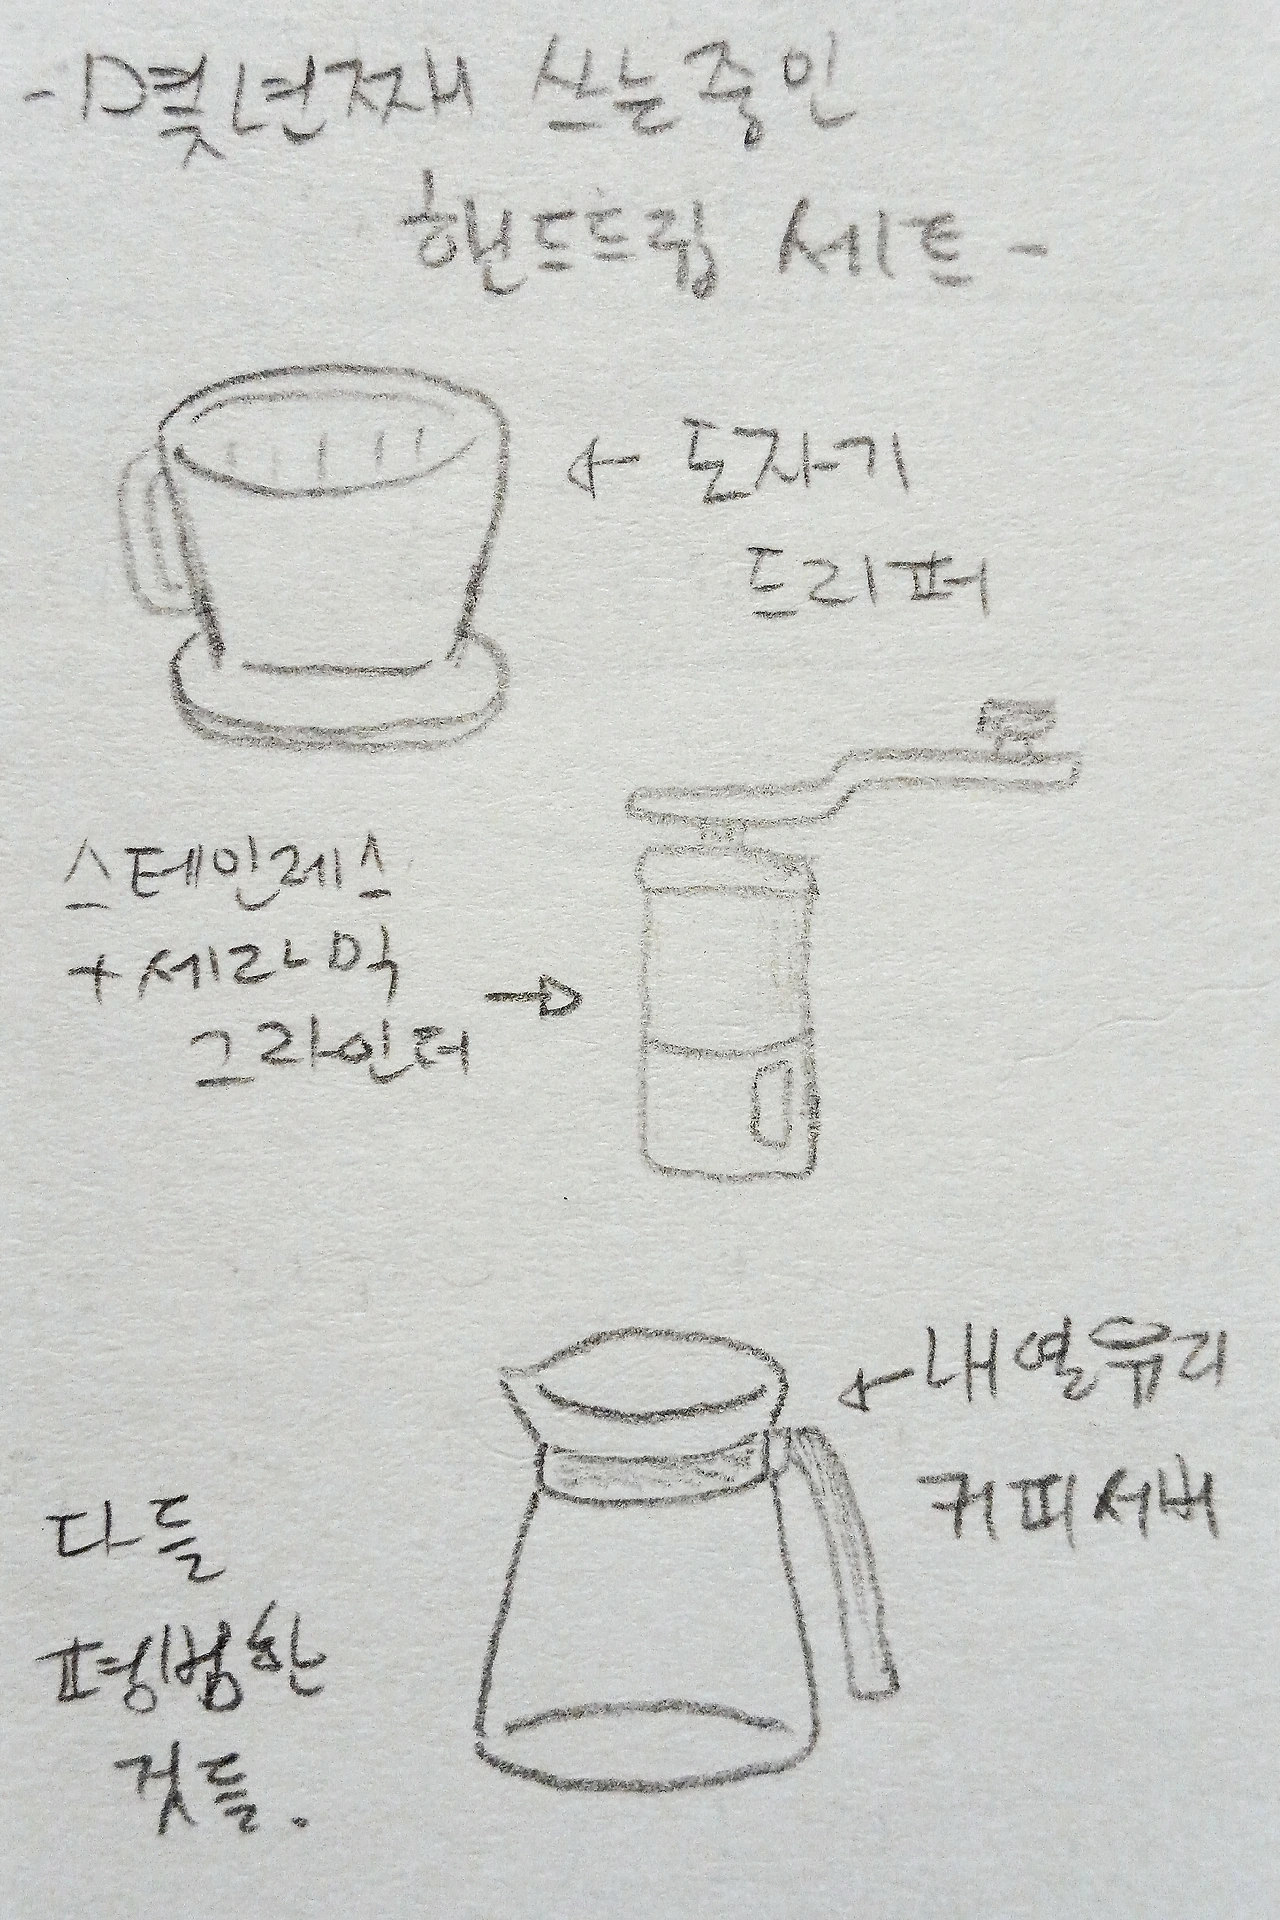 -몇년째 쓰는중인
핸드드립 세트-
← 도자기
드리퍼
스테인레스
+세라믹
그라인더 →
←내열유리
커피서버
다들
평범한
것들.